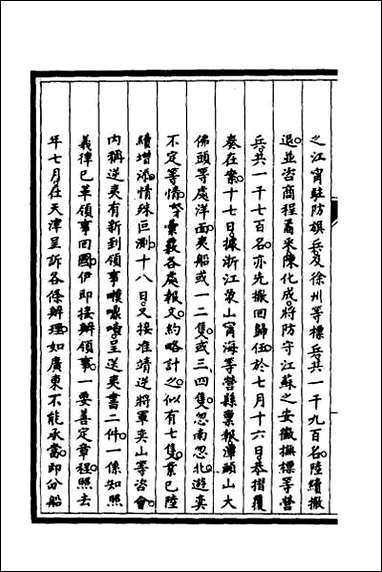 之江甯駐防旗兵及徐州等標兵共一千九百名陸續撤
退並咨商程矞采陳化成將防守江蘇之安徽撫標等營
兵共一千七百名亦先撤回歸伍於七月十六日恭摺覆
奏在案十七日據浙江象山甯海等營縣稟報潭頭山大
佛頭等處洋面夷船或一二隻或三四隻忽南忽北遊奕
不定等情茲彙覈各處報文約略計之似有七隻業已陸
續增添情殊叵測十八日又接准靖逆將軍奕山等咨會
內稱逆夷有新到領事嘆嘣喳呈送夷書二件一係知照
義律已革領事回國伊即接辦領事一要善定章程照去
年七月在天津呈訴各條辦理如廣東不能承當即分船